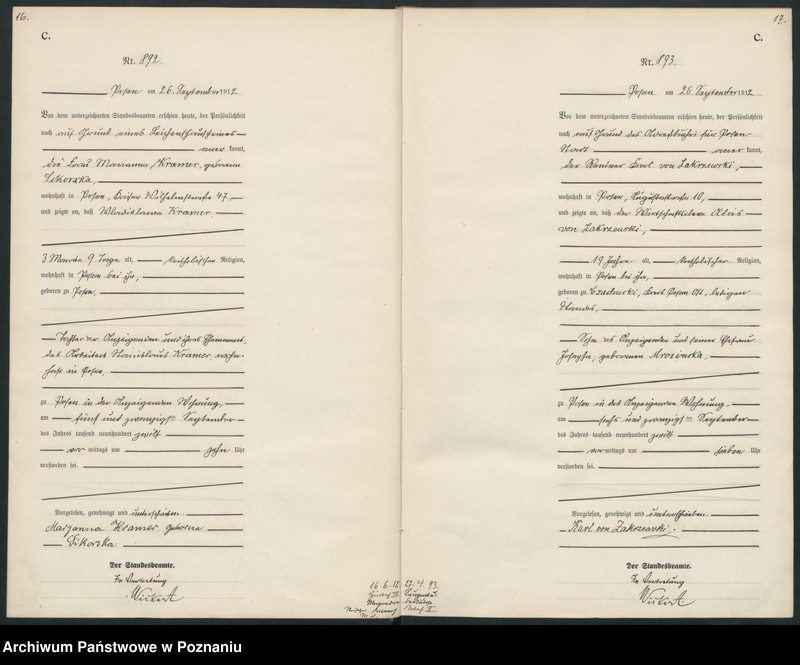 16.
C.
Nr. 892.
Posen am 26. September 1912
Vor dem unterzeichneten Standesbeamten erschien heute, der Persönlichkeit
nach auf Grund eines Leichenschauscheines
kannt,
die Frau Marianna Kramer, geborene
Sikorska,
wohnhaft in Posen, Kaiser Wilhelmstraße 47
und zeigte an, daß Wladislawa Kramer,
3 Monate 9 Tage alt, katholischer Religion,
wohnhaft in Posen bei ihr,
geboren zu Posen,
Tochter der Anzeigenden und ihres Ehemannes,
des Arbeiters Stanislaus Kramer, wohn-
haft in Posen
zu Posen in der Anzeigenden Wohnung,
am fünf und zwanzigsten September
des Jahres tausend neunhundert zwölf
vor mittags um zehn Uhr
verstorben sei.
Vorgelesen, genehmigt und unterschrieben.
Maryanna Kramer geborene
Sikorska
Der Standesbeamte.
In Vertretung
17.
C.
Nr. 893.
Posen am 26. September 1912
Vor dem unterzeichneten Standesbeamten erschien heute, der Persönlichkeit
nach auf Grund des Adreßbuchs für Posen
Stadt kannt,
der Rentner Karl von Zakrzewski,
wohnhaft in Posen, Augustastraße 10,
und zeigte an, daß der
von Zakrzewski,
19 Jahre alt, katholischer Religion,
wohnhaft in Posen bei ihm,
geboren zu Kreis Posen Ost, ledigen
Standes,
Sohn des Anzeigenden und seiner Ehefrau
Josepha, geborenen Mrozinska,
zu Posen in des Anzeigenden Wohnung
am sechs und zwanzigsten September
des Jahres tausend neunhundert zwölf
vor mittags um sieben Uhr
verstorben sei.
Vorgelesen, genehmigt und unterschrieben.
Karl von Zakrzewski.
Der Standesbeamte.
In Vertretung
16.6.12
27.4.93.
Archiwum Państwowe w Poznaniu